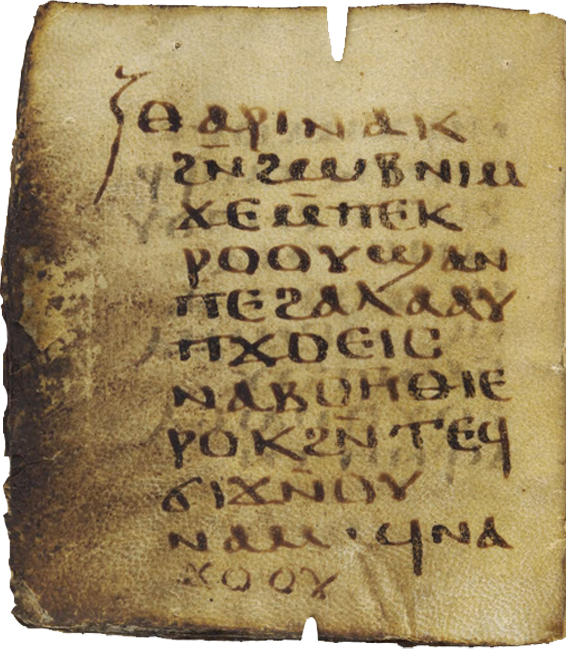 ⲑⲁⲣⲓⲛⲁⲕ
ϩⲛ̄ϩⲱⲃⲛⲓⲙ
ϫⲉⲙ̄ⲡⲉⲕ
ⲣⲟⲟⲩϣⲁⲛ
ⲡⲉϩⲁⲗⲁⲁⲩ
ⲡϫⲟⲉⲓⲥ
ⲛⲁⲃⲟⲏⲑⲓⲉ
ⲣⲟⲕϩⲛ̄ⲧⲉϥ
ϭⲓϫⲛ̄ⲟⲩ
ⲛⲁⲙ·ϥⲛⲁ
ϫⲟⲟⲩ